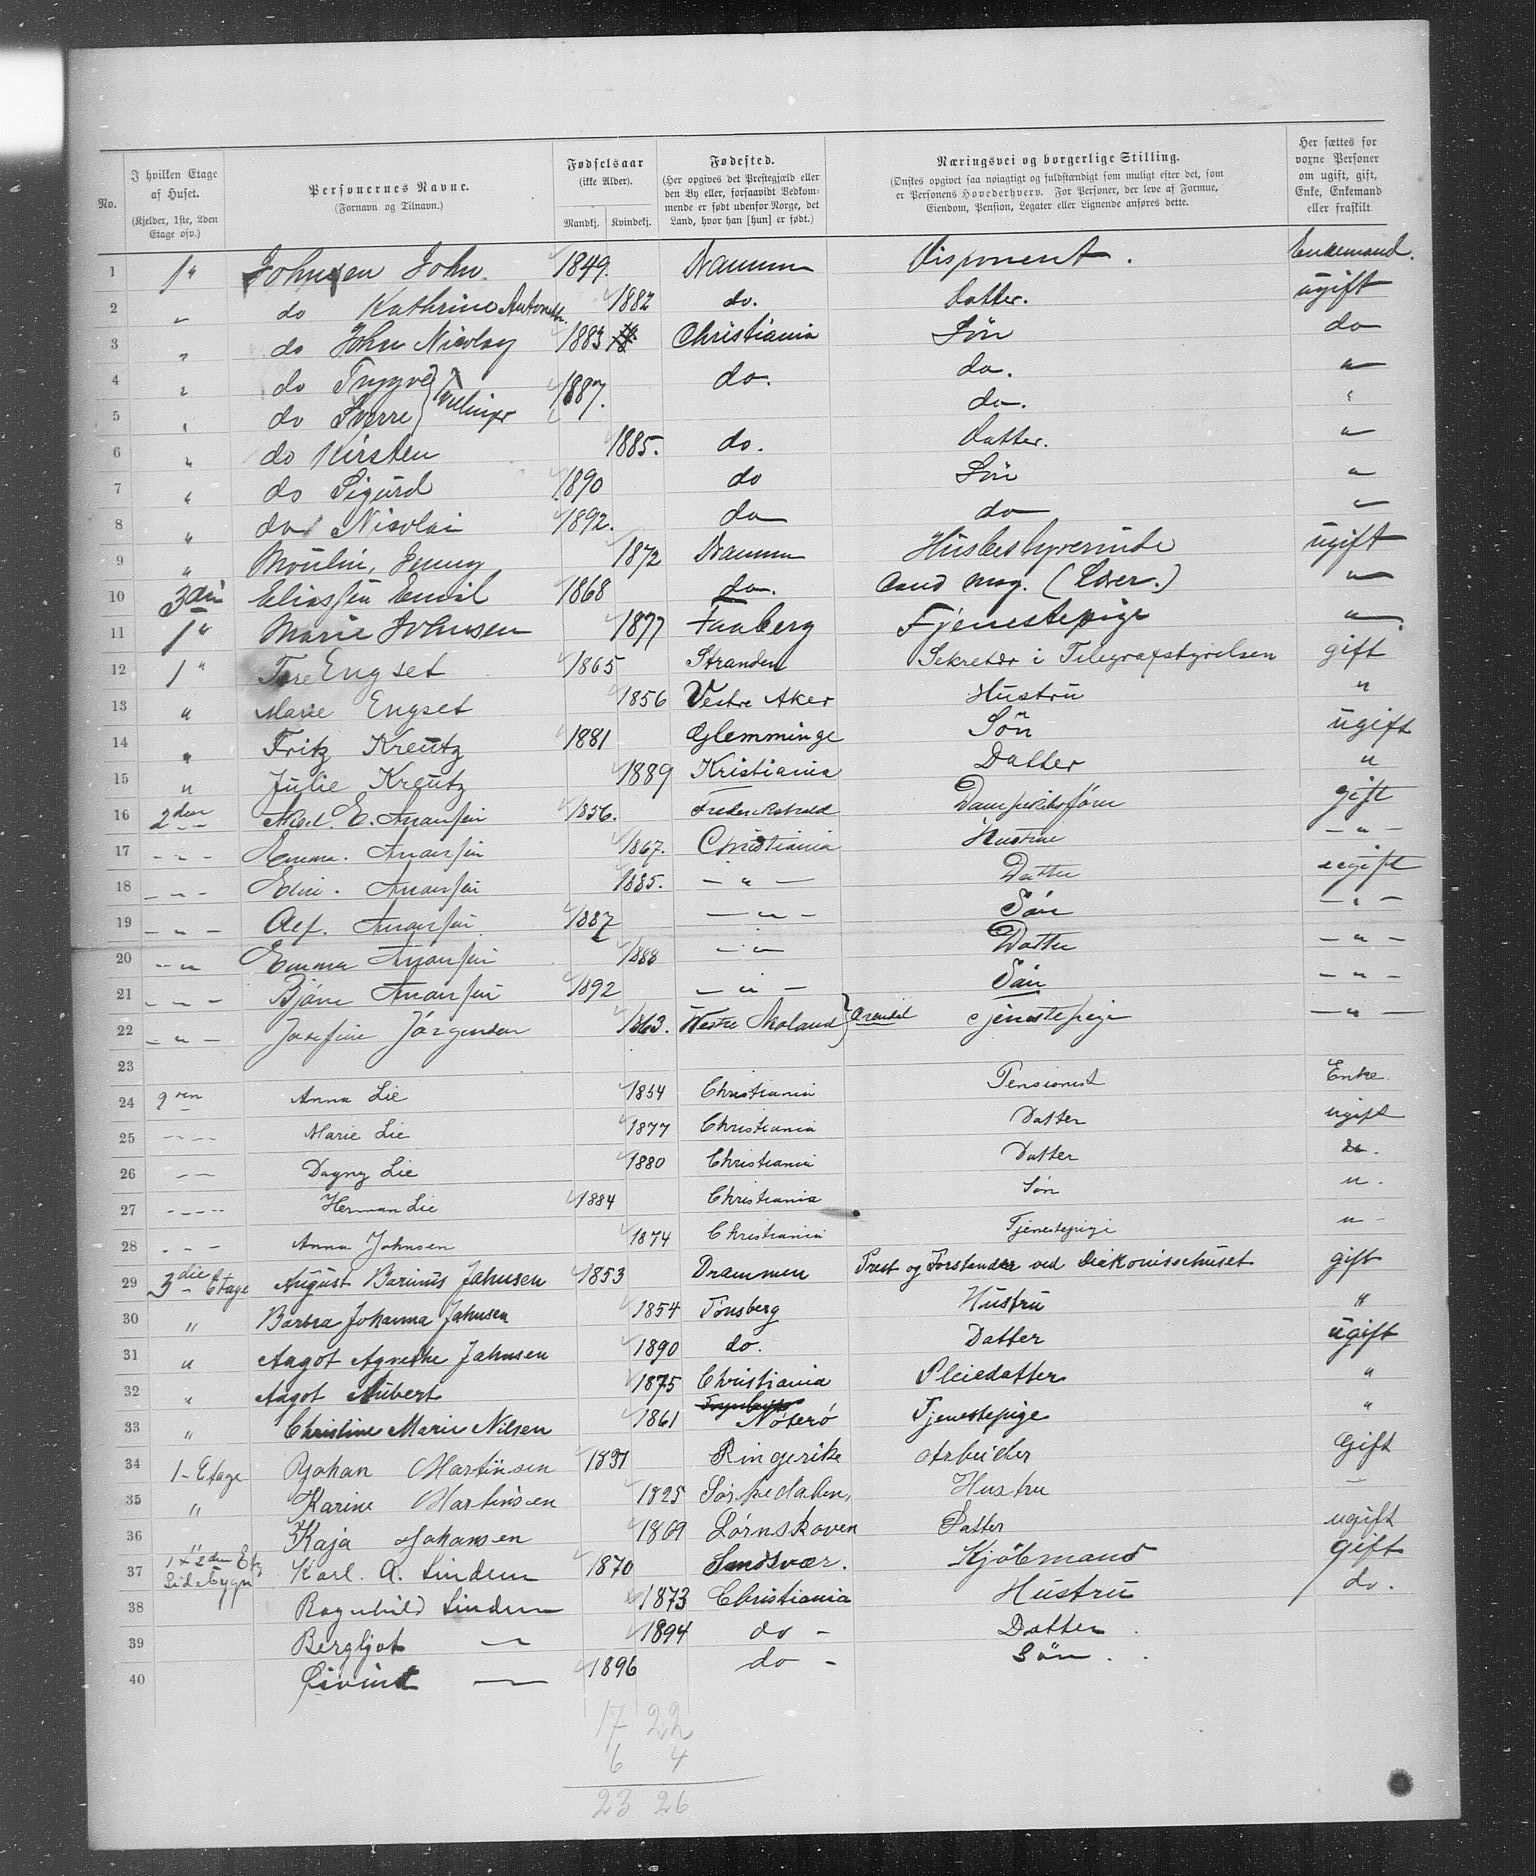 No.
I hvilken Etage af Huset. (Kjelder, 1ste, 2den Etage osv.)
Personernes Navne. (Fornavn og Tilnavn.)
Fødselsaar (ikke Alder). Mandkj. Kvindekj.
Fødested. (Her opgives det Prestegjæld eller den By eller, forsaavidt Vedkommende er født udenfor Norge, det Land, hvor han [hun] er født.)
Næringsvei og borgerlige Stilling. (Ønskes opgivet saa nøiagtigt og fuldstændigt som muligt efter det, som er Personens Hovederhverv. For Personer, der leve af Formue, Eiendom, Pension, Legater eller Lignende anføres dette.
Her sættes for voxne Personer om ugift, gift, Enke, Enkemand eller fraskilt
1 1" Johnsen John. 1849. Drammen Disponent. Enkemand.
2 " do Kathrine 1882 do. Datter. ugift
3 " do John Nicolay 1883 Christiania Søn do
4 " do Trygve } Tvillinger 1887. do. do. "
5 " do Sverre do. "
6 " do Kirsten 1885. do. Datter. "
7 " do Sigurd 1890 do Søn "
8 " do Nicolai 1892. do do "
9 " Moulin, Jenny 1872 Drammen Husbestyrerinde ugift
10 3die Eliassen Emil 1868 do. Cand mag. (Lærer.) "
11 1" Marie Johnsen 1877 Faaberg Tjenestepige "
12 1" Tore Engset 1865 Stranden Sekretær i Telegrafstyrelsen gift
13 " Marie Engset 1856 Vestre Aker Hustru "
14 " Fritz Kreutz 1881 Glemminge Søn ugift
15 " Julie Kreutz 1889 Kristiania Datter "
16 2den Aksel. E. 1856. Frederikshald Dampskibsfører gift
17 - " - Emma. 1867. Christiania Hustru - " -
18 - " - 1885. - " - Datter ugift
19 - " - 1887 - " - Søn - " -
20 - " Emma 1888 - " - Datter - " -
21 - " - 1892 - " - Søn - " -
22 - " - Josefine Jörgensen 1863. Vestre Moland } Arendal Tjenestepige - " -
23
24 2den Anna Lie 1854 Christiania Pensionist Enke
25 - - - Marie Lie 1877 Christiania Datter ugift
26 - - Dagny Lie 1880 Christiania Datter do.
27 - - - - Herman Lie 1884 Christiania Søn "
28 - - - Anna Johnsen 1874 Christiania Tjenestepige " -
29 3die Etage August Barinus Jahnsen 1853 Drammen Prest og Forstander ved Diakonissehuset gift
30 " Barbra Johanna Jahnsen 1854 Tönsberg Hustru "
31 " Aagot Agnethe Jahnsen 1890 do. Datter ugift
32 " Aagot Aubert 1875 Christiania Pleiedatter "
33 " Christine Marie Nilsen 1861 Nöterö Tjenestepige "
34 1- Etage Johan Martinsen 1831 Ringerike Arbeider Gift
35 " Karine Martinsen 1825 Sørkedalen, Hustru -
36 " Kaja Johansen 1869 Lørnskoven Datter ugift
37 1 + 2den Etg Sidebygn Karl. A. Lindem 1870 Sandsvær. Kjöbmand gift
38 Ragnhild Lindem 1873 Christiania Hustru do.
39 Bergljot - 1894 do - Datter.
40 Øivind - 1896 do - Søn.
17 22
6 4
23 26